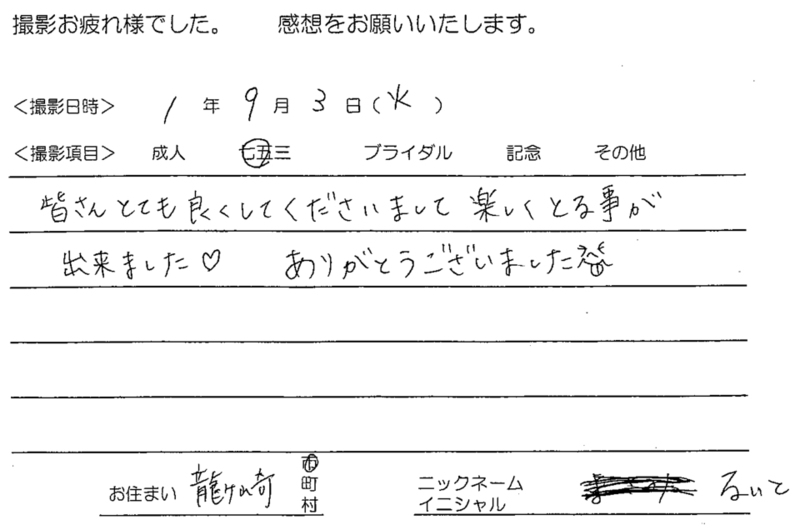 撮影お疲れ様でした。 感想をお願いいたします。
<撮影日時> 1 年 9 月 3 日(火)
<撮影項目> 成人 七五三 ブライダル 記念 その他
皆さんとても良くしてくださいまして 楽しくとる事が
出来ました♡ ありがとうございました
お住まい 龍ヶ崎 市町村
ニックネーム イニシャル るいと